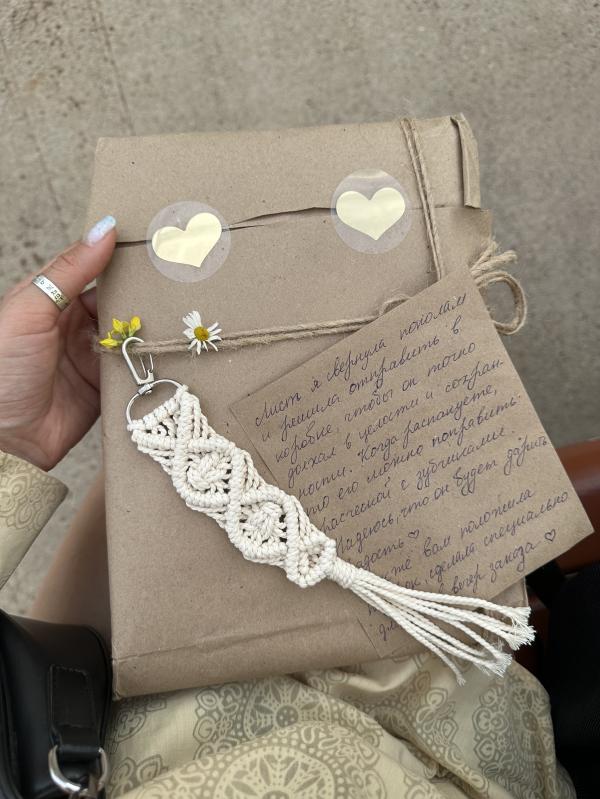 Лист я свернула пополам
и решила отправить в
коробке, чтобы он точно
доехал в целости и сохран-
ности. Когда распакуете,
то его можно поправить
расчёской с зубчиками.
Надеюсь, что он будет дарить
радость ♡
же вам положила
сделала специально
вечер заказа ♡